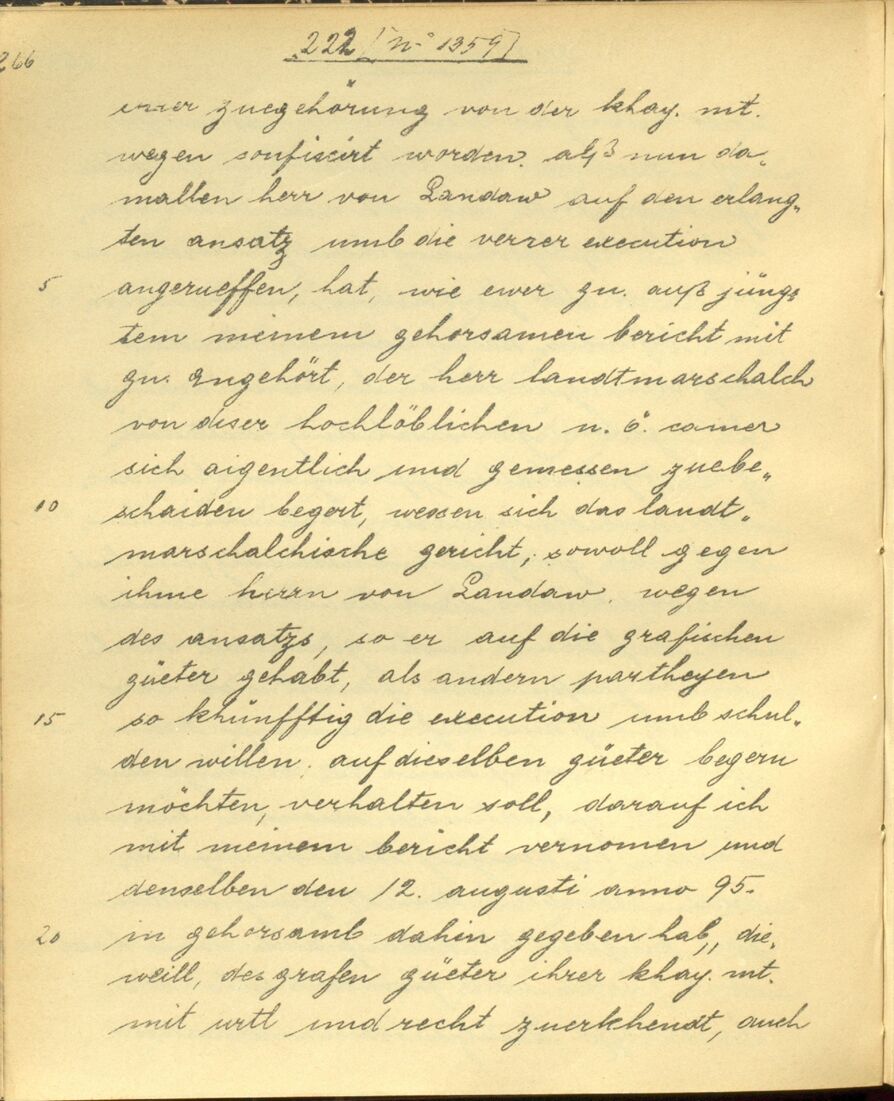 222 [N° 1359]
266
einer zuegehörung von der khay. mt.
wegen confiscirt worden. alß nun da„
mallen herr von Landaw auf den erlang„
ten ansatz umb die verrer execution
5 angerueffen, hat, wie ewer gn. auß jüngs
tem meinem gehorsamen bericht mit
gn. angehört, der herr landtmarschalch
von diser hochlöblichen n. ö. camer
sich aigentlich und gemessen zuebe„
10 schaiden begert, wessen sich das landt„
marschalchische gericht, sowoll gegen
ihme herrn von Landaw, wegen
des ansatzs, so er auf die grafischen
güeter gehabt, als andern partheyen
15 so khünfftig die execution umb schul„
den willen auf dieselben güeter begern
möchten, verhalten soll, darauf ich
mit meinem bericht vernomen und
denselben den 12. augusti anno 95.
20 in gehorsamb dahin gegeben hab, die„
weill, des grafen güeter ihrer khay. mt.
mit urtl und recht zuerkhendt, auch